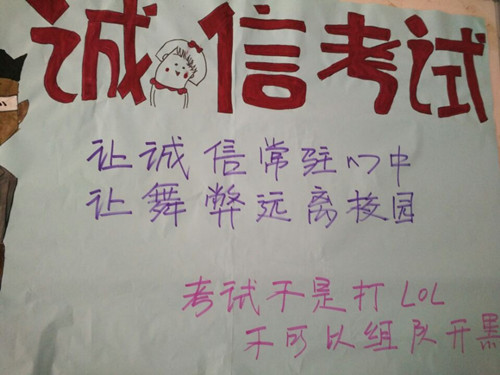 诚信考试
让诚信常驻心中
让舞弊远离校园
考试不是打LOL
不可以组队开黑